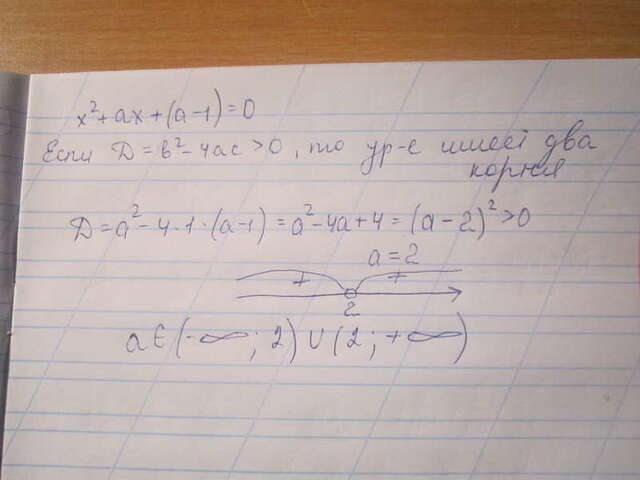 x²+ax+(a-1)=0
Если D=b²-4ac>0, то ур-е имеет два
корня
D=a²-4·1·(a-1)=a²-4a+4=(a-2)²>0
a=2
+ +
2
a∈(-∞;2)∪(2;+∞)